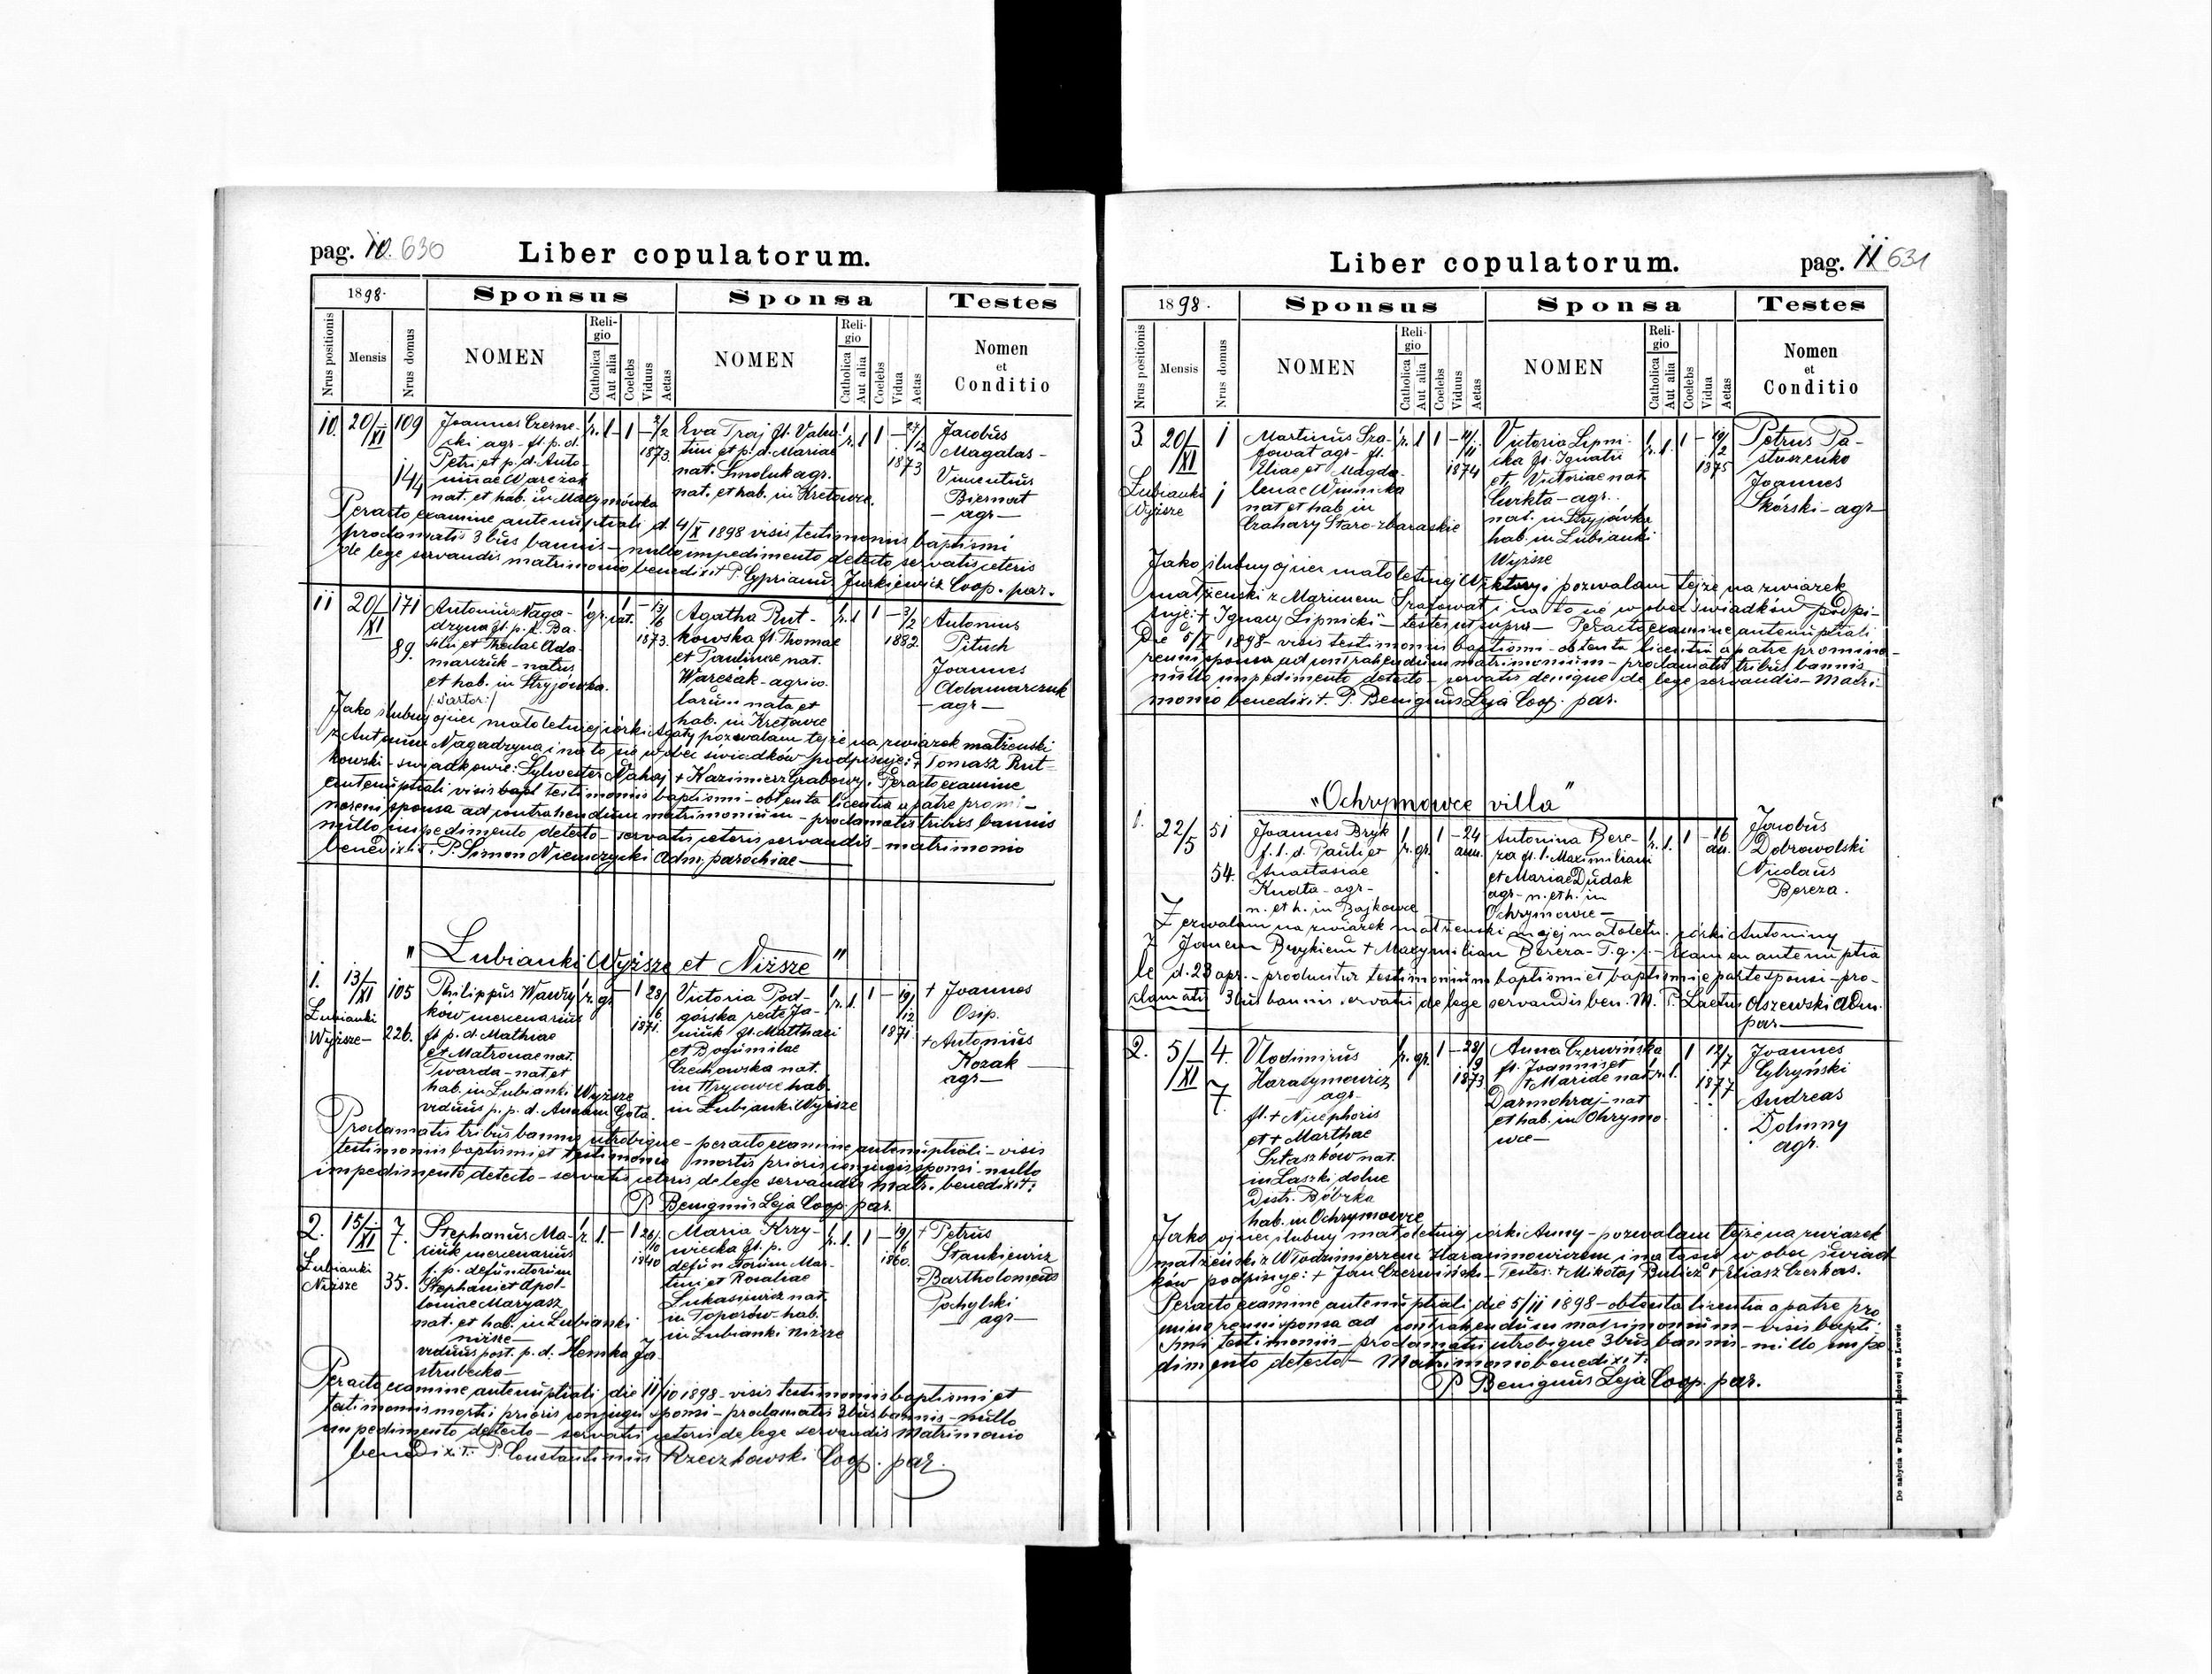 pag. 10. 630
Liber copulatorum.
1898.
Sponsus
Sponsa
Testes
Nrus positionis
Mensis
Nrus domus
NOMEN
Religio
Catholica
Aut alia
Coelebs
Viduus
Aetas
NOMEN
Religio
Catholica
Aut alia
Coelebs
Vidua
Aetas
Nomen
et
Conditio
10. 20/XI 109
144
Joannes Czerne-
cki agr. fil. p. d.
Petri et p. d. Anto-
ninae Warezak
nat. et hab. in Maxymówka
r. 1 1 – 2/2
1873.
Eva Traj fil. Valen-
tini et p. d. Mariae
nat. Smoluk agr.
nat. et hab. in Kretowce.
r. 1 1 – 27/12
1873
Jacobus
Magalas –
Vincentius
Biernat
– agr –
Peracto examine antenuptiali d. 4/X 1898 visis testimoniis baptismi
proclamatis 3bus bannis – nullo impedimento detecto, servatis ceteris
de lege servandis matrimonio benedixit P. Cyprianus Jurkiewicz Coop. par.
11 20/XI 171
89.
Antonius Naga-
dzyna fil. p. d. Ba-
silii et Theclae Ada-
marczuk – natus
et hab. in Stryjówka.
/: Sartor :/
1873.
Agatha Rut-
kowska fil. Thomae
et Paulinae nat.
Warezak – agrico-
larum nata et
hab. in Kretowce
r. 1 1 – 3/2
1882.
Antonius
Pituch
Joannes
Adamarczuk
– agr –
Jako ślubny ojciec małoletniej córki Agaty pozwalam tejże na związek małżeński
z Antonim Nagadzyna i na to się wobec świadków podpisuję: + Tomasz Rut-
kowski – świadkowie: Sylwester Nahaj + Kazimierz Grabowy. Peracto examine
antenuptiali visis bapt testimoniis baptismi – obtenta licentia a patre promi-
noreni sponsa ad contrahendum matrimonium – proclamatis tribus bannis
nullo impedimento detecto – servatis ceteris servandis – matrimonio
benedixit: P. Simon Niemczycki Adm. parochiae –
„Lubianki Wyższe et Niższe"
1. 13/XI 105
Lubianki
Wyższe – 226.
Philippus Wawry-
ków mercenarius
fil p. d. Mathiae
et Matronae nat.
Twarda – nat et
hab. in Lubianki Wyższe
viduus p. p. d. Annam Gota.
r. gr. – 1 28/6
1871.
Victoria Pod-
górska recte Ja-
niuk fil. Matthaei
et Bogumilae
Czechowska nat.
in Hrycowce hab.
in Lubianki Wyższe
r. 1. 1 – 19/12
1871.
+ Joannes
Osip.
+ Antonius
Kozak –
agr –
Proclamatis tribus bannis utrobique – peracto examine antenuptiali – visis
testimoniis baptismi et testimonio mortis prioris conjugis sponsi – nullo
impedimento detecto – servatis ceteris de lege servandis matr. benedixit:
P. Benignus Leja Coop. par.
2. 15/XI 7.
Lubianki
Niższe 35.
Stephanus Ma-
ciuk mercenarius
f. p. defunctorum
Stephani et Apol-
loniae Maryasz
nat. et hab. in Lubianki
niższe –
viduus post. p. d. Hemka Ja-
strubecka –
r. 1. – 1 26/10
1840
Maria Krzy-
wiecka fil. p.
defunctorum Mar-
tini et Rosaliae
Lukasiewicz nat.
in Toporów – hab.
in Lubianki niższe
r. 1. 1 – 19/6
1860.
+ Petrus
Stankiewicz
+ Bartholomeus
Pochylski
agr –
Peracto examine antenuptiali die 11/10 1898 – visis testimoniis baptismi et
testimoniis mortis prioris conjugis sponsi – proclamatis 3bus bannis – nullo
impedimento detecto – servatis ceteris de lege servandis Matrimonio
benedixit. P. Constantinus Rzeczkowski Coop. par.
Liber copulatorum.
pag. 11 631
1898.
Sponsus
Sponsa
Testes
Nrus positionis
Mensis
Nrus domus
NOMEN
Religio
Catholica
Aut alia
Coelebs
Viduus
Aetas
NOMEN
Religio
Catholica
Aut alia
Coelebs
Vidua
Aetas
Nomen
et
Conditio
3. 20/XI 1
Lubianki
Wyższe 1
Martinus Sza-
fowat agr – fil.
Eliae et Magda-
lenae Winnicka
nat et hab in
Czahary Staro-zbaraskie
r. 1 1 – 11/11
1874
Victoria Lipni-
cka fil. Ignatii
et Victoriae nat.
Curkta – agr.
nat. in Stryjówka
hab. in Lubianki
Wyższe
r. 1. 1 – 19/2
1875
Petrus Pa-
stuszenko
Joannes
Skórski – agr –
Jako ślubny ojciec małoletniej Wiktoryi pozwalam tejże na związek
małżeński z Marcinem Szafowat i na to się wobec świadków podpi-
suję: + Ignacy Lipnicki – testes ut supra – Peracto examine antenuptiali
die 6/X 1898 – visis testimoniis baptismi – obtenta licentia a patre promino-
renni sponsa ad contrahendum matrimonium – proclamatis tribus bannis
nullo impedimento detecto – servatis denique de lege servandis – Matri-
monio benedixit. P. Benignus Leja Coop. par.
„Ochrymowce villa"
1. 22/5 51
54.
Joannes Bryk
f. l. d. Pauli et
Anastasiae
Kudta – agr –
n. et h. in Bojkowce
r. gr. 1 – 24
ann.
Antonina Bere-
za fil. l. Maximiliani
et Mariae Dudak
agr – n. et h. in
Ochrymowce –
r. 1. 1 – 16
an.
Jacobus
Dobrowolski
Nicolaus
Bereza.
Zezwalam na związek małżeński mojej małoletn. córki Antoniny
z Janem Brykiem + Maxymilian Bereza – T. g. :. – Examen antenuptia-
le d. 28 apr. – producitur testimonium baptismi et baptismi e parte sponsi – pro-
clamatis 3bus bannis servatis de lege servandis ben. M. P. Laetus Olszewski Adm.
par –
2. 5/XI 4.
7.
Vlodimirus
Harasymowicz
– agr –
fil. + Nicephoris
et + Marthae
Sztaszków nat.
in Laszki dolne
Distr. Bóbrka
hab. in Ochrymowce
r. gr. 1 – 28/9
1873.
Anna Czerwińska
fil. Joannis et
+ Mariae nat.
Darmohraj – nat
et hab. in Ochrymo-
wce –
r. 1. 1 12/7
1877
Joannes
Cytryński
Andreas
Dolinny
agr.
Jako ojciec ślubny małoletniej córki Anny – pozwalam tejże na związek
małżeński z Włodzimierzem Harasimowiczem i na to się w obec świad-
ków podpisuję: + Jan Czerwiński – Testes: + Mikołaj Bulicz + Eliasz Czerkas.
Peracto examine antenuptiali die 5/11 1898 – obtenta licentia a patre pro
minorenni sponsa ad contrahendum matrimonium – visis bapti-
smi testimoniis – proclamatis utrobique 3bus bannis – nullo impe-
dimento detecto – Matrimonio benedixit:
P. Benignus Leja Coop. par.
Do nabycia w Drukarni Ludowej we Lwowie